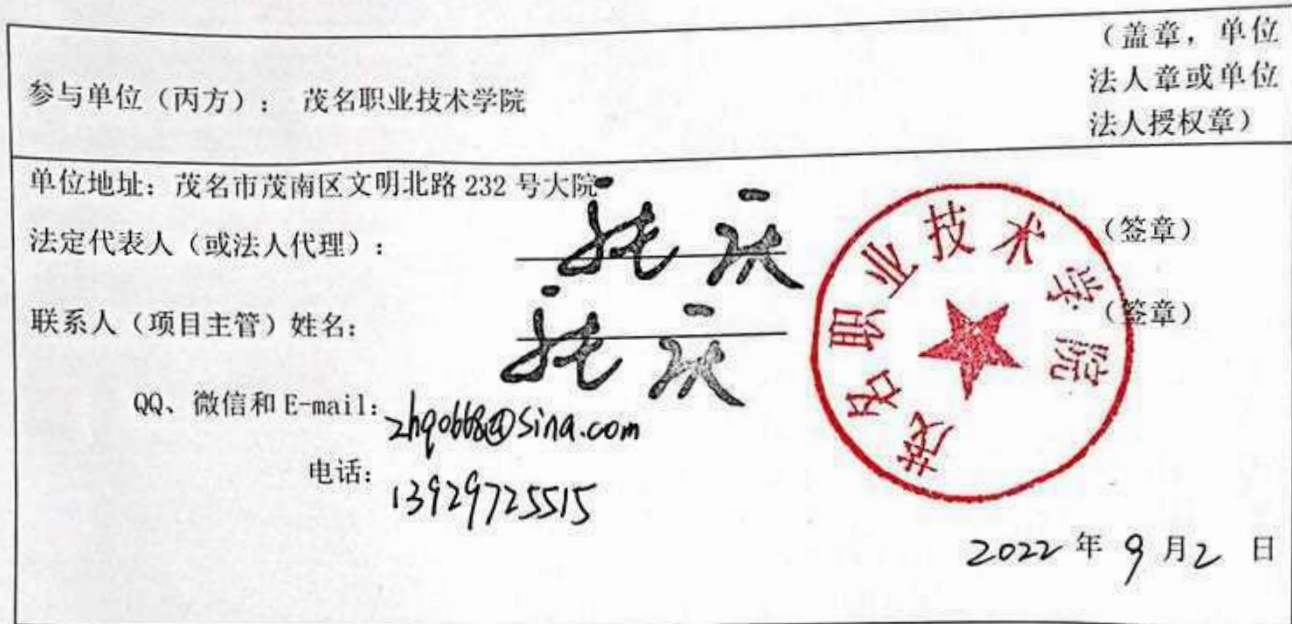 参与单位（丙方）： 茂名职业技术学院
（盖章，单位
法人章或单位
法人授权章）
单位地址：茂名市茂南区文明北路 232 号大院
法定代表人（或法人代理）：
（签章）
联系人（项目主管）姓名：
（签章）
QQ、微信和 E-mail：zhq0668@sina.com
电话：13929725515
茂名职业技术学院
2022 年 9 月 2 日